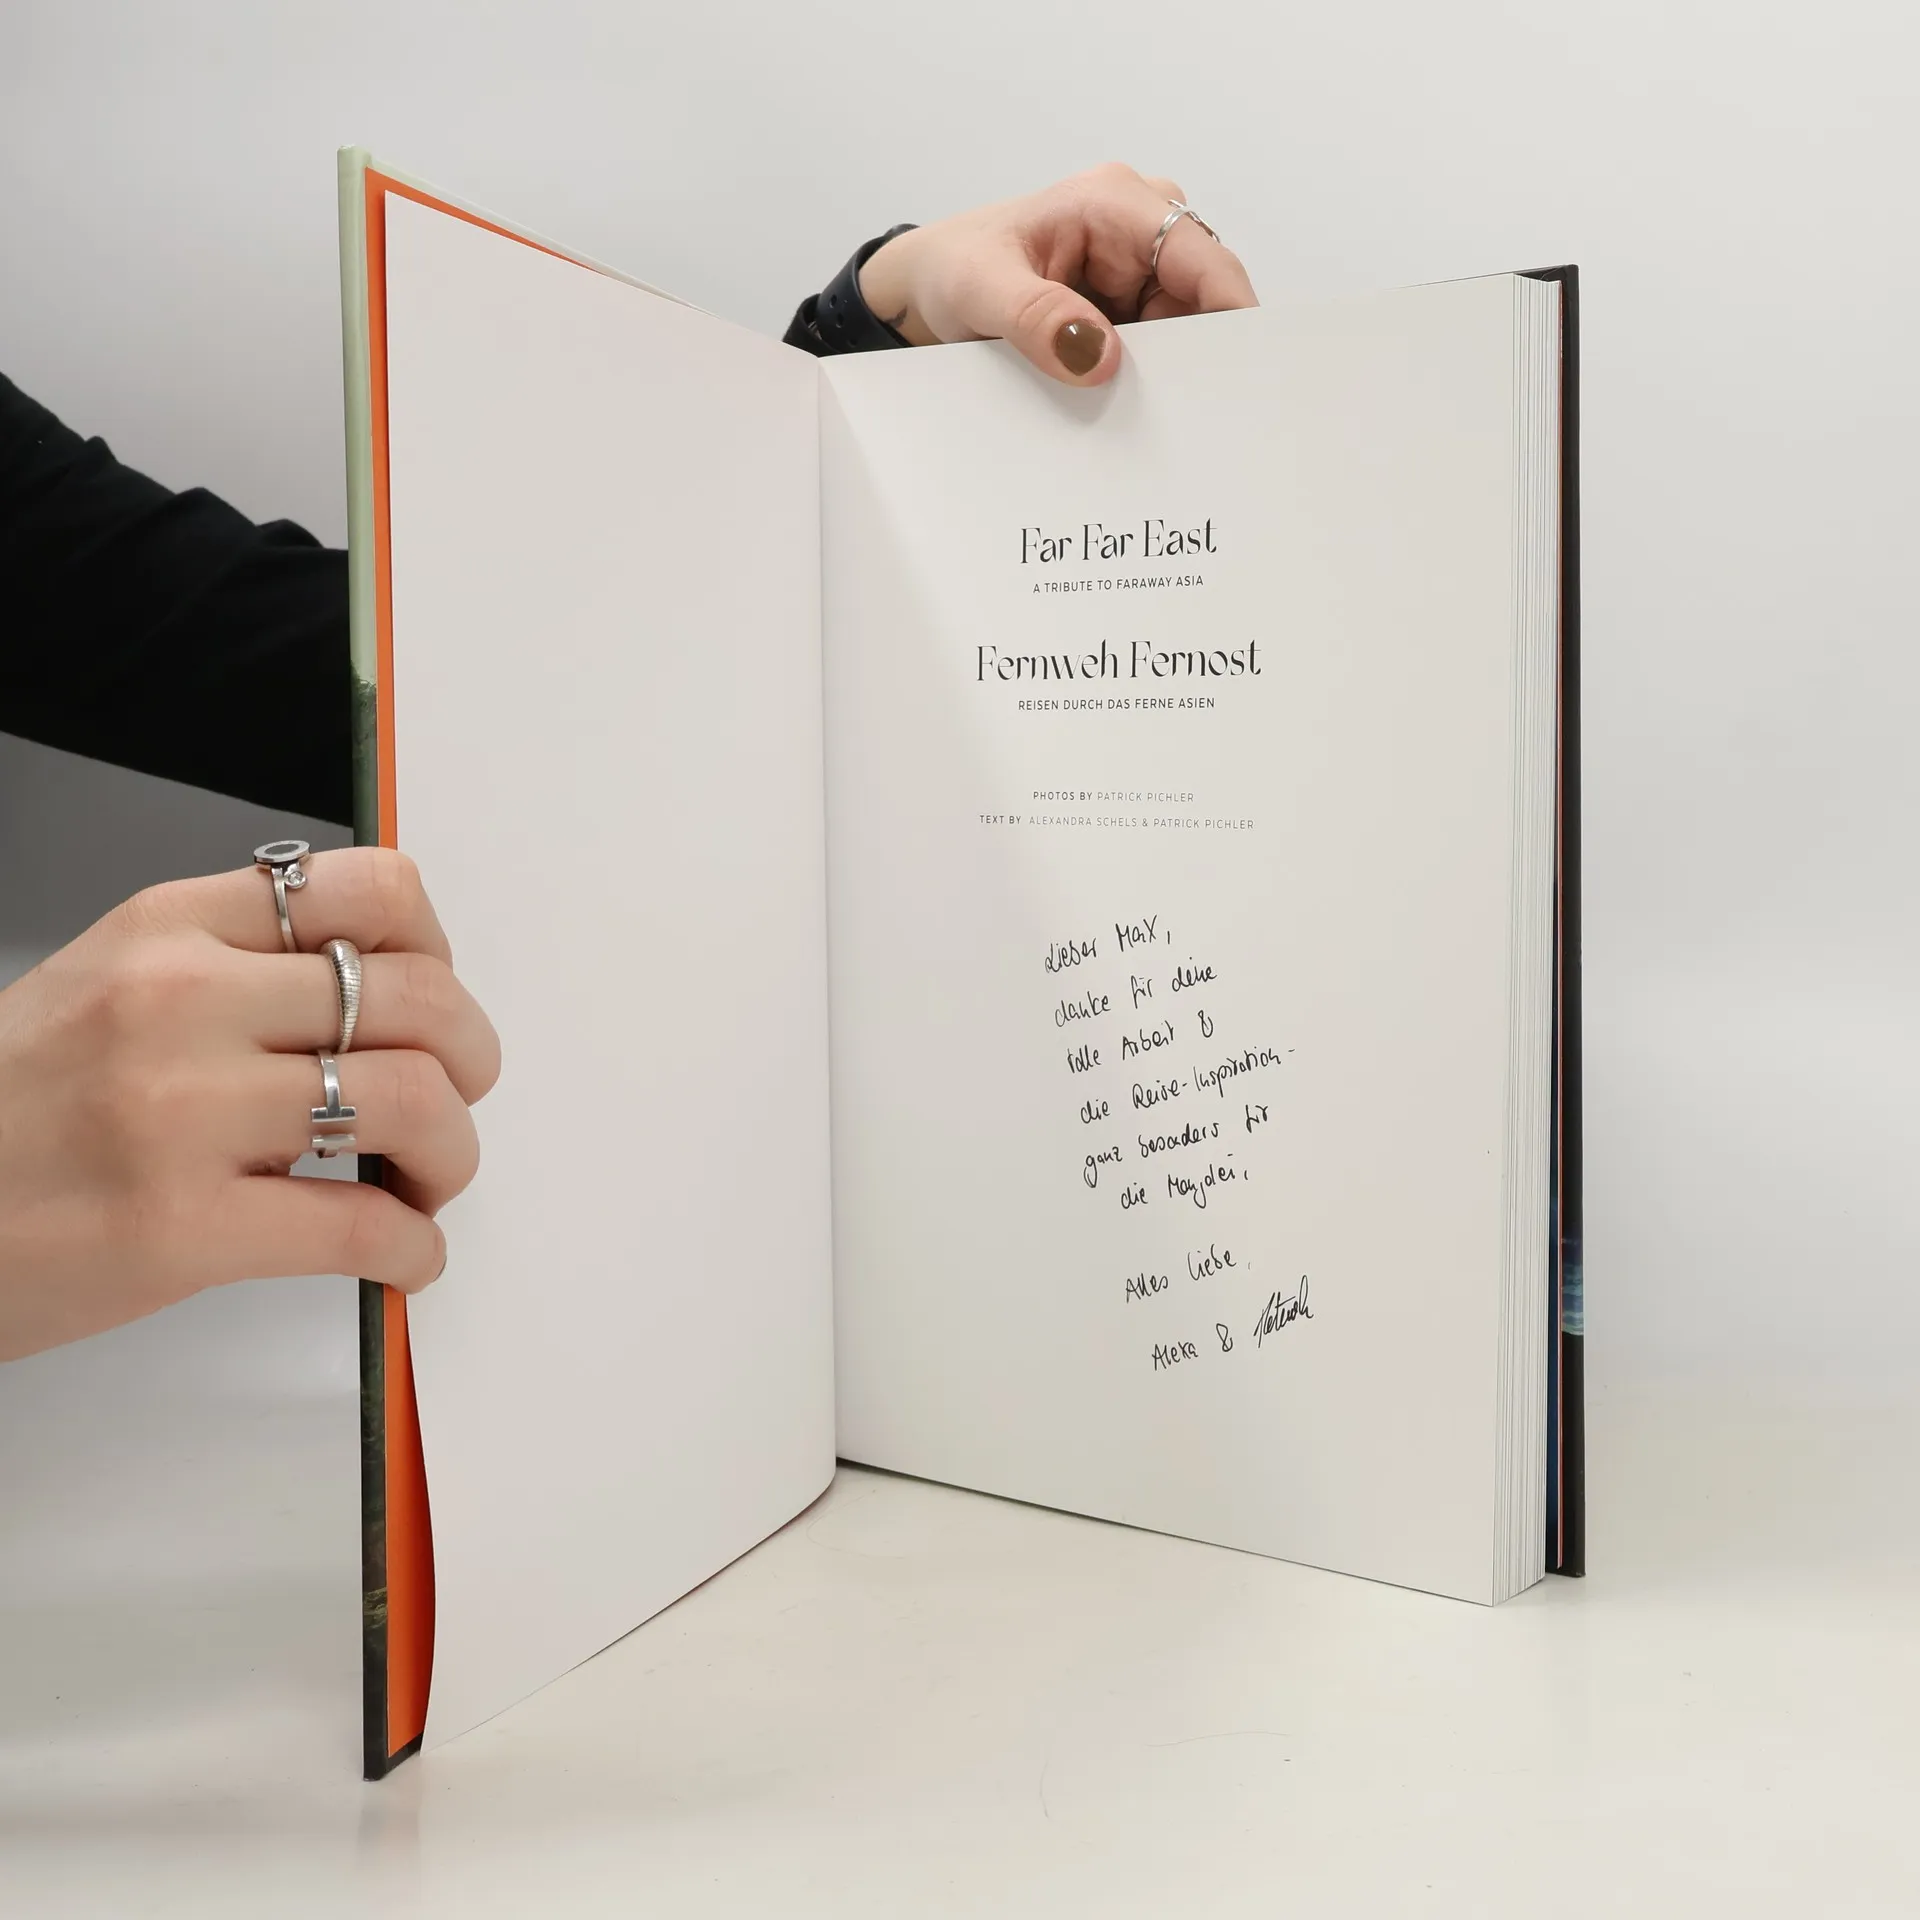 Far Far East
A TRIBUTE TO FARAWAY ASIA
Fernweh Fernost
REISEN DURCH DAS FERNE ASIEN
PHOTOS BY PATRICK PICHLER
TEXT BY ALEXANDRA SCHELS & PATRICK PICHLER
Lieber Max,
danke für deine
tolle Arbeit &
die Reise-Inspiration -
ganz besonders für
die
Alles Liebe,
Alexa &